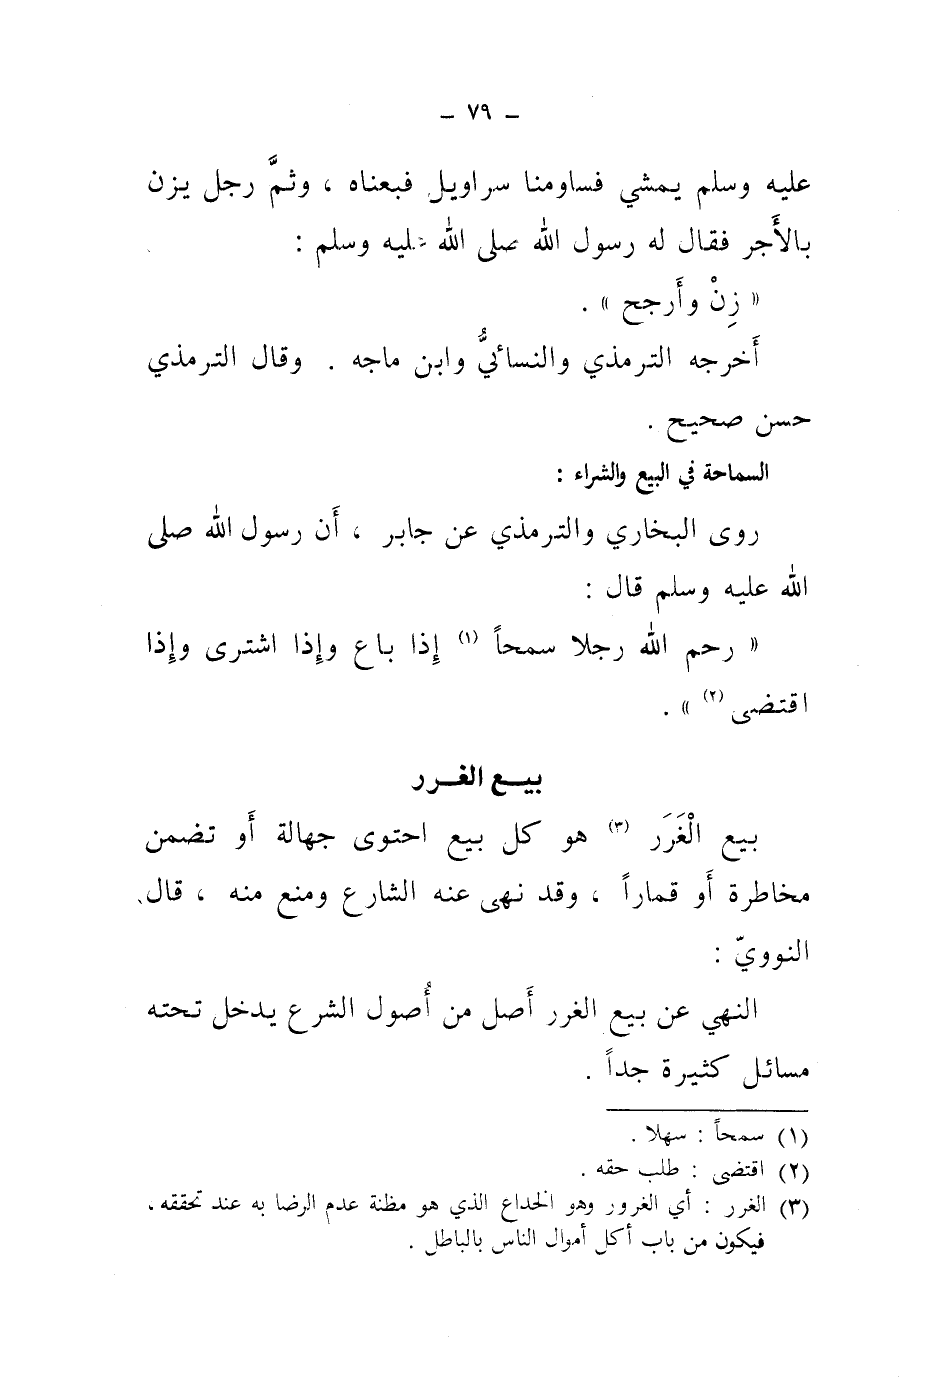 – ٧٩ –
عليه وسلم يمشي فساومنا سراويل فبعناه ، وثمَّ رجل يزن
بالأَجر فقال له رسول الله صلى الله عليه وسلم :
« زِنْ وأَرجِح » .
أَخرجه الترمذي والنسائيُّ وابن ماجه . وقال الترمذي
حسن صحيح .
السماحة في البيع والشراء :
روى البخاري والترمذي عن جابر ، أَن رسول الله صلى
الله عليه وسلم قال :
« رحم الله رجلا سمحاً (١) إِذا باع وإِذا اشترى وإِذا
اقتضى (٢) » .
بيع الغرر
بيع الْغَرَر (٣) هو كل بيع احتوى جهالة أَو تضمن
مخاطرة أَو قماراً ، وقد نهى عنه الشارع ومنع منه ، قال
النوويّ :
النهي عن بيع الغرر أَصل من أُصول الشرع يدخل تحته
مسائل كثيرة جداً .
(١) سمحاً : سهلا .
(٢) اقتضى : طلب حقه .
(٣) الغرر : أي الغرور وهو الخداع الذي هو مظنة عدم الرضا به عند تحققه ،
فيكون من باب أكل أموال الناس بالباطل .